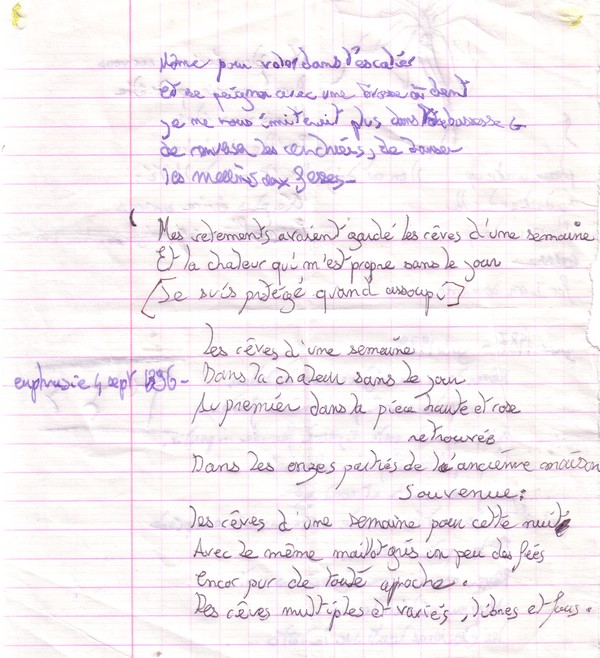 Même pour voler dans l'escalier
Et se peigner avec une brosse à dent
je me nous imiterait plus dans
de renverser les cendriers, de danser
les mains aux fesses -
( Mes vetements avaient gardé les rêves d'une semaine
Et la chaleur qui m'est propre sans le jour
[Je suis protégé quand assoupi]
Les rêves d'une semaine
euphrasie 4 sept 1996 - Dans la chaleur sans le jour
Au premier dans la pièce haute et rose
retrouvés
Dans les onzes parties de l'ancienne maison
Souvenue:
les rêves d'une semaine pour cette nuit
Avec le même maillot gris un peu des fées
Encor pur de toute aproche.
Des rêves multiples et variés, libres et fous.